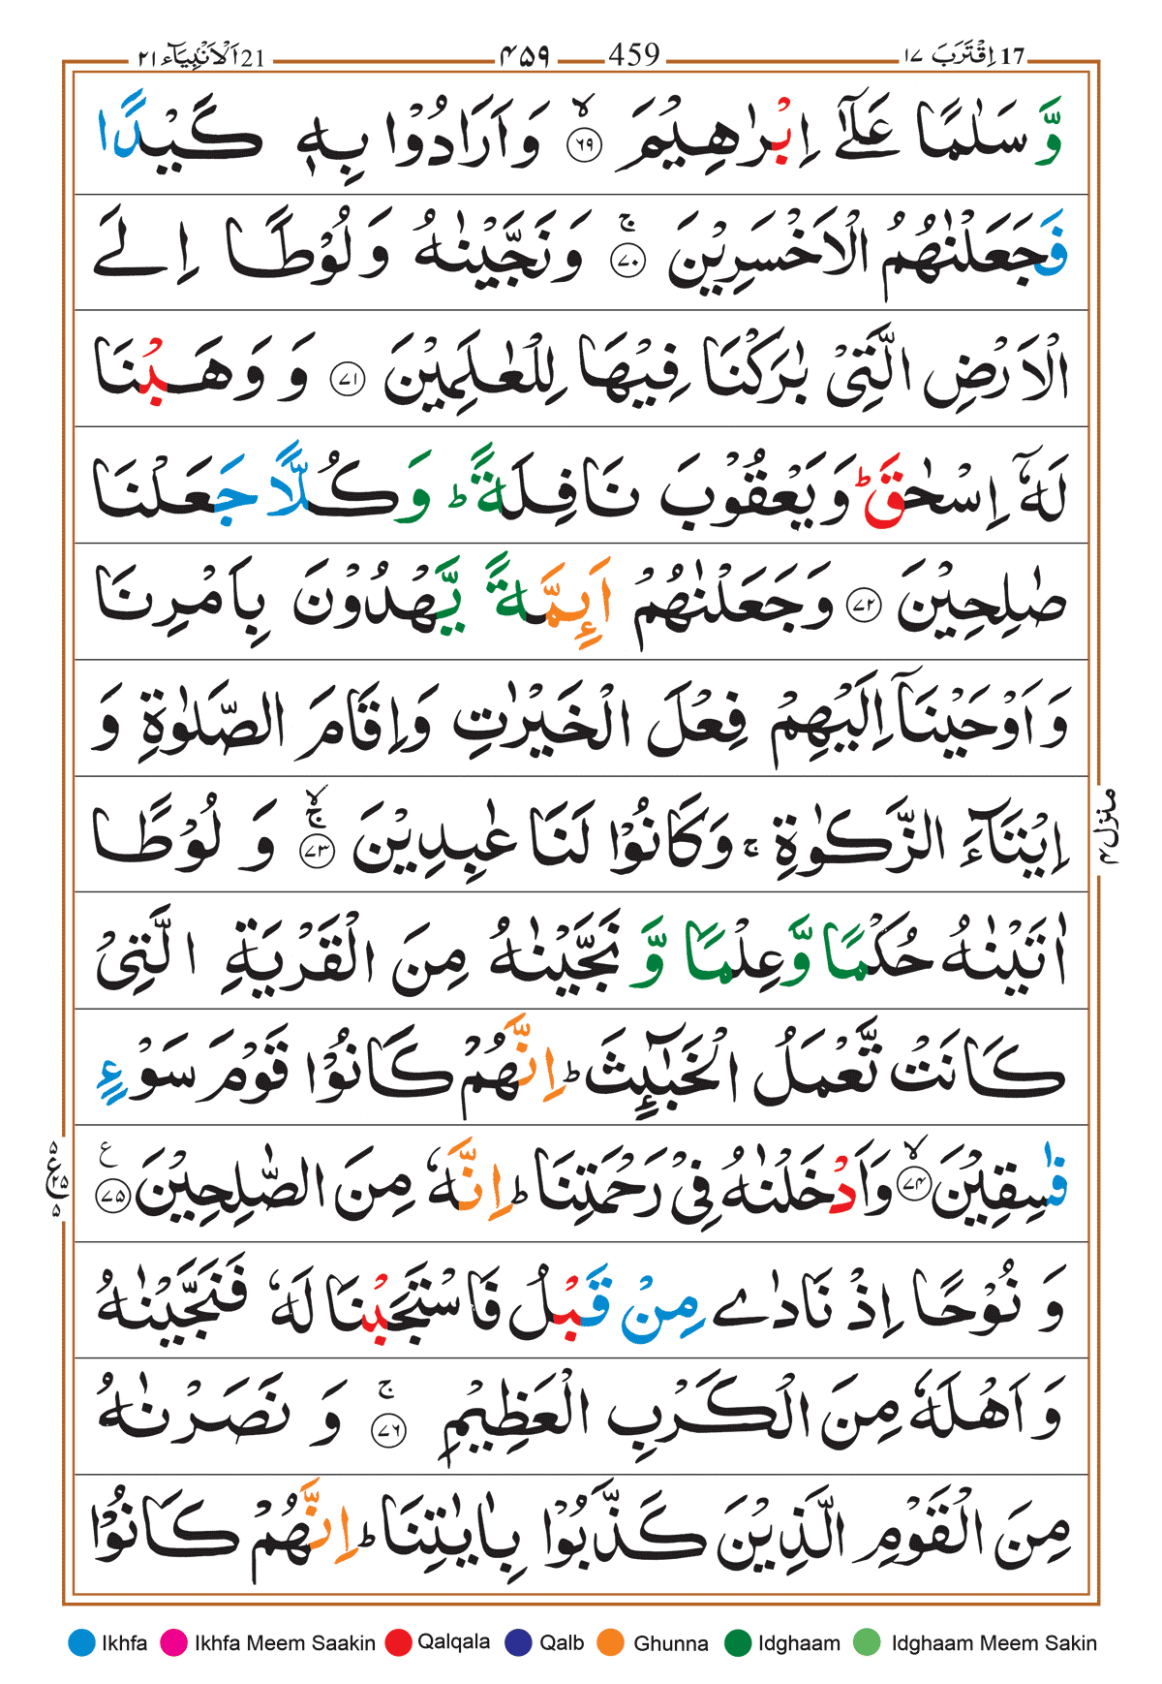 17 اِقْتَرَبَ ۱۷ 459 ۴۵۹ 21 اَلْاَنْۢبِيَآء ۲۱
وَّ سَلٰمًا عَلٰۤى اِبْرٰهِيْمَ ۙ ﴿۶۹﴾ وَ اَرَادُوْا بِهٖ كَيْدًا
فَجَعَلْنٰهُمُ الْاَخْسَرِيْنَ ۚ ﴿۷۰﴾ وَ نَجَّيْنٰهُ وَ لُوْطًا اِلَى
الْاَرْضِ الَّتِيْ بٰرَكْنَا فِيْهَا لِلْعٰلَمِيْنَ ﴿۷۱﴾ وَ وَهَبْنَا
لَهٗۤ اِسْحٰقَ ؕ وَ يَعْقُوْبَ نَافِلَةً ؕ وَ كُلًّا جَعَلْنَا
صٰلِحِيْنَ ﴿۷۲﴾ وَ جَعَلْنٰهُمْ اَىِٕمَّةً يَّهْدُوْنَ بِاَمْرِنَا
وَ اَوْحَيْنَاۤ اِلَيْهِمْ فِعْلَ الْخَيْرٰتِ وَ اِقَامَ الصَّلٰوةِ وَ
اِيْتَآءَ الزَّكٰوةِ ۚ وَ كَانُوْا لَنَا عٰبِدِيْنَ ۙۚ ﴿۷۳﴾ وَ لُوْطًا
اٰتَيْنٰهُ حُكْمًا وَّ عِلْمًا وَّ نَجَّيْنٰهُ مِنَ الْقَرْيَةِ الَّتِيْ
كَانَتْ تَّعْمَلُ الْخَبٰٓىِٕثَ ؕ اِنَّهُمْ كَانُوْا قَوْمَ سَوْءٍ
فٰسِقِيْنَ ۙ ﴿۷۴﴾ وَ اَدْخَلْنٰهُ فِيْ رَحْمَتِنَا ؕ اِنَّهٗ مِنَ الصّٰلِحِيْنَ ﴿۷۵﴾ ع
وَ نُوْحًا اِذْ نَادٰى مِنْ قَبْلُ فَاسْتَجَبْنَا لَهٗ فَنَجَّيْنٰهُ
وَ اَهْلَهٗ مِنَ الْكَرْبِ الْعَظِيْمِ ۚ ﴿۷۶﴾ وَ نَصَرْنٰهُ
مِنَ الْقَوْمِ الَّذِيْنَ كَذَّبُوْا بِاٰيٰتِنَا ؕ اِنَّهُمْ كَانُوْا
منزل ۴
۵ ع ۲۵ ۵
Ikhfa Ikhfa Meem Saakin Qalqala Qalb Ghunna Idghaam Idghaam Meem Sakin